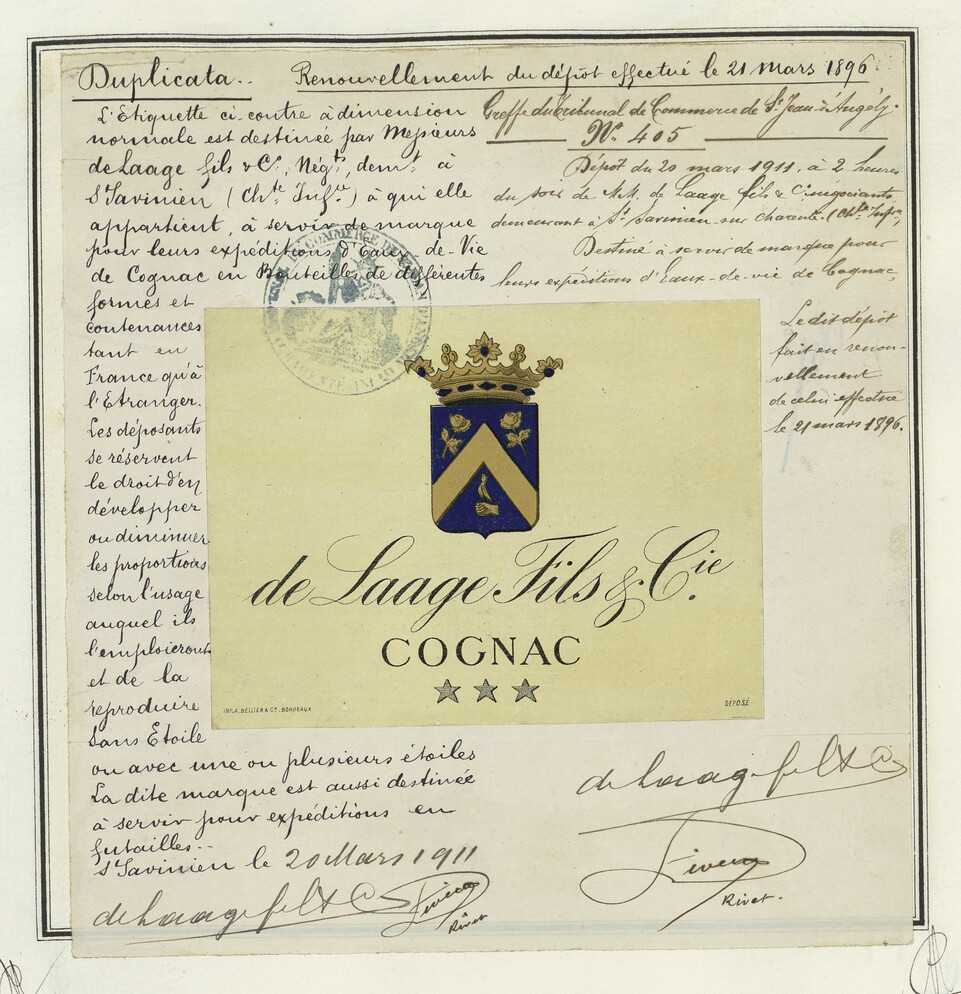 Duplicata..
Renouvellement du dépôt effectué le 21 mars 1896.
L'Etiquette ci-contre à dimension
normale est destinée par Messieurs
de Laage fils & Cie, Négts, demt à
St Savinien (Chte Infre) à qui elle
appartient, à servir de marque
pour leurs expéditions d'Eaux-de-Vie
de Cognac en Bouteilles de différentes
formes et
contenances
tant en
France qu'à
l'Etranger.
Les déposants
se réservent
le droit d'en
développer
ou diminuer
les proportions
selon l'usage
auquel ils
l'emploieront
et de la
reproduire
Sans Etoile
ou avec une ou plusieurs étoiles
La dite marque est aussi destinée
à servir pour expéditions en
futailles..
St Savinien le 20 Mars 1911
de Laage fils & Cie
Rivet
Greffe du Tribunal de Commerce de St Jean d'Angély.
No. 405
Dépôt du 20 mars 1911, à 2 heures
du soir de M.M. de Laage fils & Cie négociants
demeurant à St Savinien-sur-charente. (Chte Infre)
Destiné à servir de marque pour
leurs expéditions d'Eaux-de-vie de Cognac,
Le dit dépôt
fait en renou-
vellement
de celui effectué
le 21 mars 1896.
de Laage Fils & Cie.
COGNAC
IMP. A. BELLIER & Cie. BORDEAUX
DÉPOSÉ
de Laage fils & Cie
Rivet.